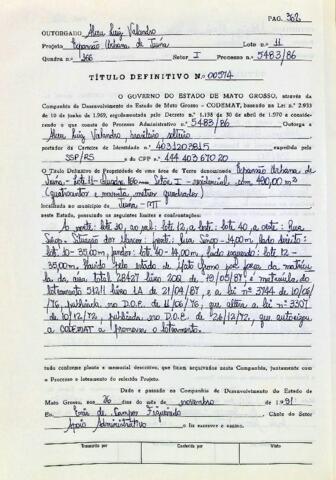 PAG. 362
OUTORGADO Alceu Luiz Valandro
Projeto Expansão Urbana de Juína Lote n.º 11
Quadra n.º 166 Setor I Processo n.º 5483/86
TÍTULO DEFINITIVO N.º 00514
O GOVERNO DO ESTADO DE MATO GROSSO, através da
Companhia de Desenvolvimento do Estado de Mato Grosso - CODEMAT, baseado na Lei n.º 2.933
de 10 de junho de 1.969, regulamentada pelo Decreto n.º 1.138 de 30 de abril de 1.970 e considerando
o que consta do Processo Administrativo n.º 5483/86 Outorga a
Alceu Luiz Valandro brasileiro solteiro
portador da Carteira de Identidade n.º 4031203815 expedida pela
SSP/RS e do CPF n.º 444 403 670 20
O Título Definitivo de Propriedade de uma área de Terra denominada Expansão Urbana de
Juína - Lote 11 - Quadra 166 Setor I - residencial com 490,00 m²
(quatrocentos e noventa metros quadrados)
localizada no município de Juína - MT
neste Estado, possuindo os seguintes limites e confrontações:
Ao norte: lote 10, ao sul: lote 12, a leste: lote 40, a oeste: Rua
Situação dos Marcos: frente: Rua 14,00m lado direito:
lote 10 - 35,00m, fundos: lote 40 - 14,00m, lado esquerdo: lote 12 -
35,00m. Havido pelo estado de Mato Grosso por força da matrícu
la da área total 28427 livro 200 de 19/05/81 e matrícula do
loteamento 51211 livro 2A de 21/04/87, e a lei nº 3744 de 10/06
/76, publicada no D.O.E. de 11/06/76, que altera a lei nº 3307
de 10/12/72, publicada no D.O.E. de 26/12/72, que autoriza
a CODEMAT a promover o loteamento.
tudo conforme planta e memorial descritivo, que ficam arquivados nesta Companhia, juntamente com
o Processo e loteamento do referido Projeto.
Dado e passado na Companhia de Desenvolvimento do Estado de
Mato Grosso, aos 26 dias do mês de novembro de 1.991
Eu, de Campos Figueiredo Chefe do Setor
Apoio Administrativo o fiz escrever e assino.
Transcrito por Conferido por Visto